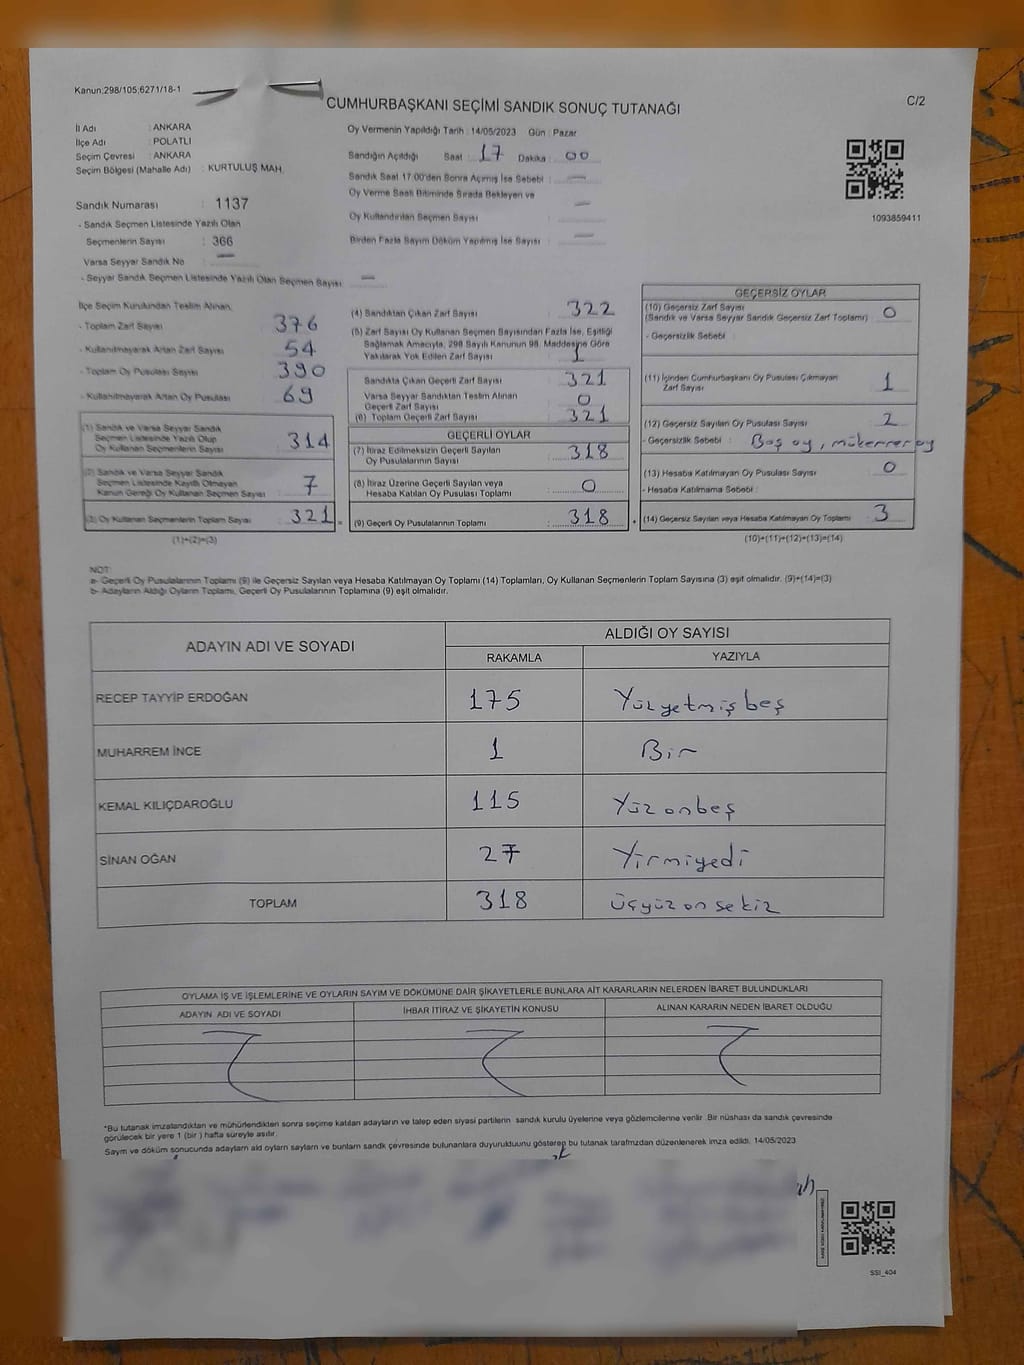 Kanun:298/105;6271/18-1
CUMHURBAŞKANI SEÇİMİ SANDIK SONUÇ TUTANAĞI
C/2
İl Adı : ANKARA
İlçe Adı : POLATLI
Seçim Çevresi : ANKARA
Seçim Bölgesi (Mahalle Adı) : KURTULUŞ MAH.
Sandık Numarası : 1137
- Sandık Seçmen Listesinde Yazılı Olan
Seçmenlerin Sayısı : 366
Varsa Seyyar Sandık No : —
- Seyyar Sandık Seçmen Listesinde Yazılı Olan Seçmen Sayısı : —
Oy Vermenin Yapıldığı Tarih : 14/05/2023 Gün : Pazar
Sandığın Açıldığı Saat : 17 Dakika : 00
Sandık Saat 17.00'den Sonra Açılmış İse Sebebi : —
Oy Verme Saati Bitiminde Sırada Bekleyen ve
Oy Kullandırılan Seçmen Sayısı : —
Birden Fazla Sayım Döküm Yapılmış İse Sayısı : —
1093859411
İlçe Seçim Kurulundan Teslim Alınan;
- Toplam Zarf Sayısı : 376
- Kullanılmayarak Artan Zarf Sayısı : 54
- Toplam Oy Pusulası Sayısı : 390
- Kullanılmayarak Artan Oy Pusulası : 69
(1) Sandık ve Varsa Seyyar Sandık
Seçmen Listesinde Yazılı Olup
Oy Kullanan Seçmenlerin Sayısı : 314
(2) Sandık ve Varsa Seyyar Sandık
Seçmen Listesinde Kayıtlı Olmayan
Kanun Gereği Oy Kullanan Seçmen Sayısı : 7
(3) Oy Kullanan Seçmenlerin Toplam Sayısı : 321 =
(1)+(2)=(3)
(4) Sandıktan Çıkan Zarf Sayısı : 322
(5) Zarf Sayısı Oy Kullanan Seçmen Sayısından Fazla İse, Eşitliği
Sağlamak Amacıyla, 298 Sayılı Kanunun 98. Maddesine Göre
Yakılarak Yok Edilen Zarf Sayısı : 1
Sandıkta Çıkan Geçerli Zarf Sayısı : 321
Varsa Seyyar Sandıktan Teslim Alınan
Geçerli Zarf Sayısı : 0
(6) Toplam Geçerli Zarf Sayısı : 321
GEÇERLİ OYLAR
(7) İtiraz Edilmeksizin Geçerli Sayılan
Oy Pusulalarının Sayısı : 318
(8) İtiraz Üzerine Geçerli Sayılan veya
Hesaba Katılan Oy Pusulası Toplamı : 0
(9) Geçerli Oy Pusulalarının Toplamı : 318 +
GEÇERSİZ OYLAR
(10) Geçersiz Zarf Sayısı
(Sandık ve Varsa Seyyar Sandık Geçersiz Zarf Toplamı) : 0
- Geçersizlik Sebebi :
(11) İçinden Cumhurbaşkanı Oy Pusulası Çıkmayan
Zarf Sayısı : 1
(12) Geçersiz Sayılan Oy Pusulası Sayısı : 2
- Geçersizlik Sebebi : Boş oy, mükerrer oy
(13) Hesaba Katılmayan Oy Pusulası Sayısı : 0
- Hesaba Katılmama Sebebi :
(14) Geçersiz Sayılan veya Hesaba Katılmayan Oy Toplamı : 3
(10)+(11)+(12)+(13)=(14)
NOT:
a- Geçerli Oy Pusulalarının Toplamı (9) ile Geçersiz Sayılan veya Hesaba Katılmayan Oy Toplamı (14) Toplamları, Oy Kullanan Seçmenlerin Toplam Sayısına (3) eşit olmalıdır. (9)+(14)=(3)
b- Adayların Aldığı Oyların Toplamı, Geçerli Oy Pusulalarının Toplamına (9) eşit olmalıdır.
ADAYIN ADI VE SOYADI
ALDIĞI OY SAYISI
RAKAMLA YAZIYLA
RECEP TAYYİP ERDOĞAN 175 Yüzyetmişbeş
MUHARREM İNCE 1 Bir
KEMAL KILIÇDAROĞLU 115 Yüzonbeş
SİNAN OĞAN 27 Yirmiyedi
TOPLAM 318 üçyüzonsekiz
OYLAMA İŞ VE İŞLEMLERİNE VE OYLARIN SAYIM VE DÖKÜMÜNE DAİR ŞİKAYETLERLE BUNLARA AİT KARARLARIN NELERDEN İBARET BULUNDUKLARI
ADAYIN ADI VE SOYADI İHBAR İTİRAZ VE ŞİKAYETİN KONUSU ALINAN KARARIN NEDEN İBARET OLDUĞU
*Bu tutanak imzalandıktan ve mühürlendikten sonra seçime katılan adayların ve talep eden siyasi partilerin sandık kurulu üyelerine veya gözlemcilerine verilir. Bir nüshası da sandık çevresinde
görülecek bir yere 1 (bir) hafta süreyle asılır.
Sayım ve döküm sonucunda adayların aldı oyların sayların ve bunların sandk çevresinde bulunanlara duyurulduunu gösteren bu tutanak tarafmzdan düzenlenerek imza edildi. 14/05/2023
SSI_404